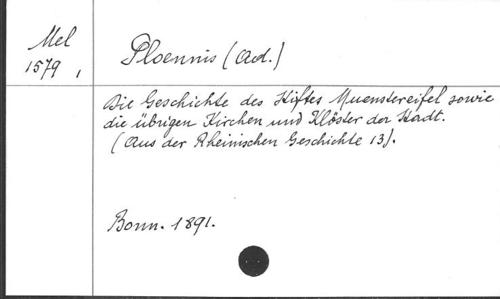 Mel
1579,
Ploennis (Ad.)
Die Geschichte des Stiftes Muenstereifel sowie
die übrigen Kirchen und Klöster der Stadt.
(Aus der Rheinischen Geschichte 13).
Bonn. 1891.